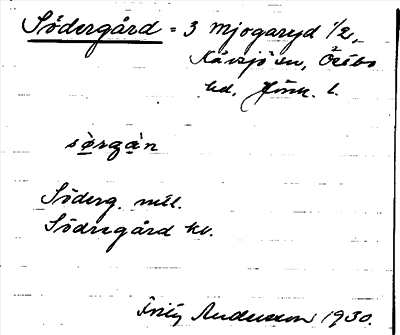 Södergård = 3 Mjogaryd 1/2,
Kävsjö sn, Östbo
hd, Jönk. l.
sörgån
Söderg. mil.
Södregård kv.
Fritz Andersson 1930.